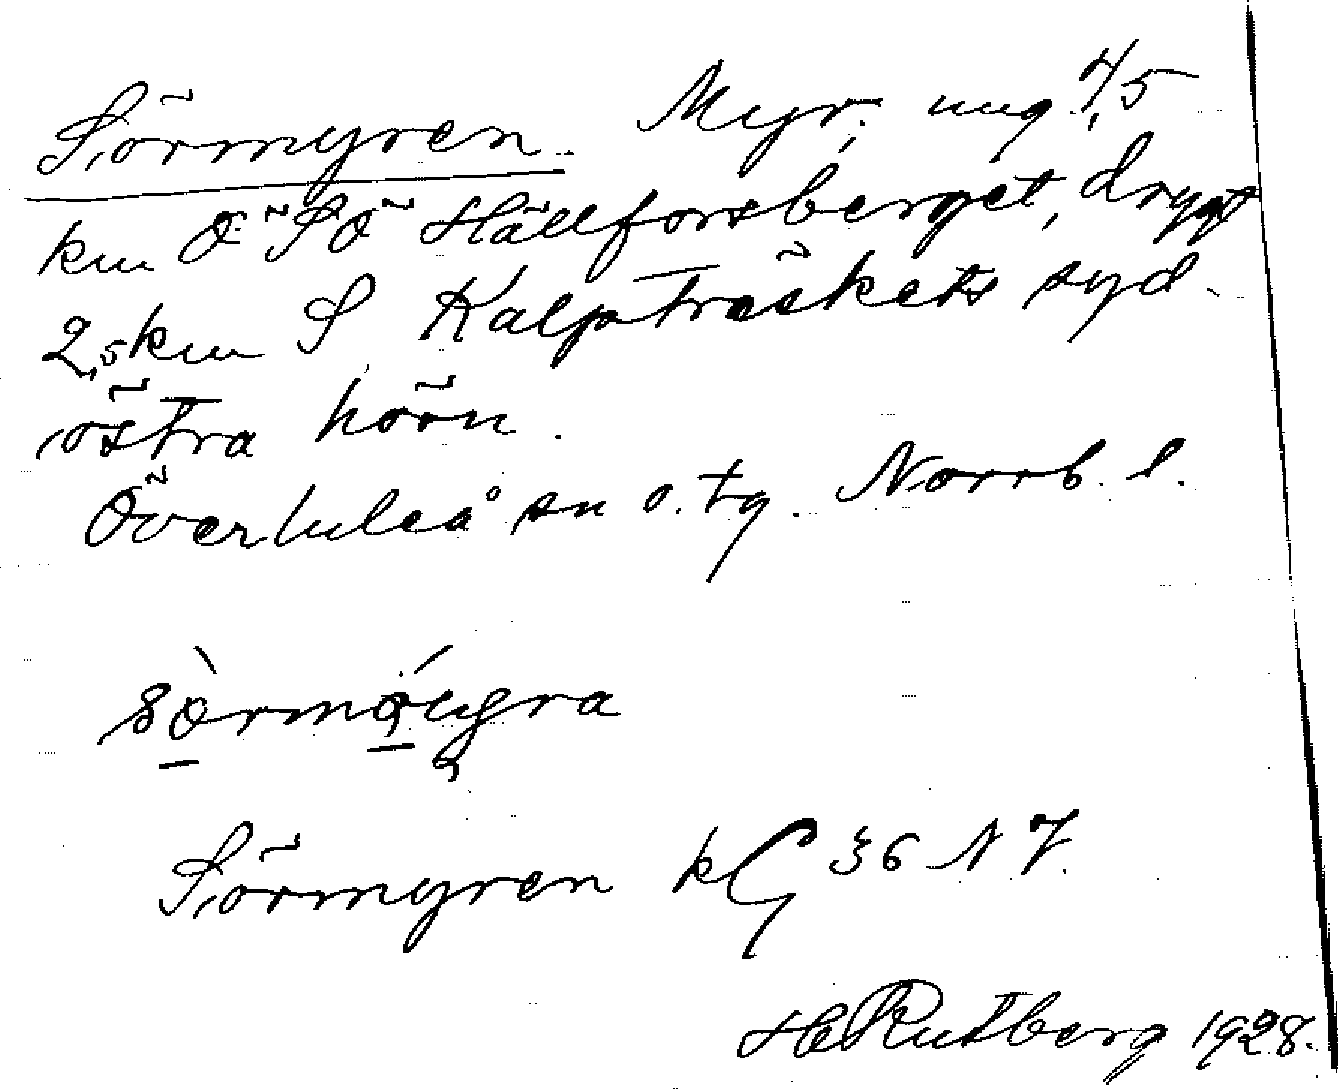 Sörmyren. Myr, ung. 7,5
km ÖSÖ Hällforsberget, drygt
2,5 km S Kalpträskets syd-
östra hörn.
Överluleå sn o. tg. Norrb. l.
Sörmyren kG 36 N 7.
HRutberg 1928.